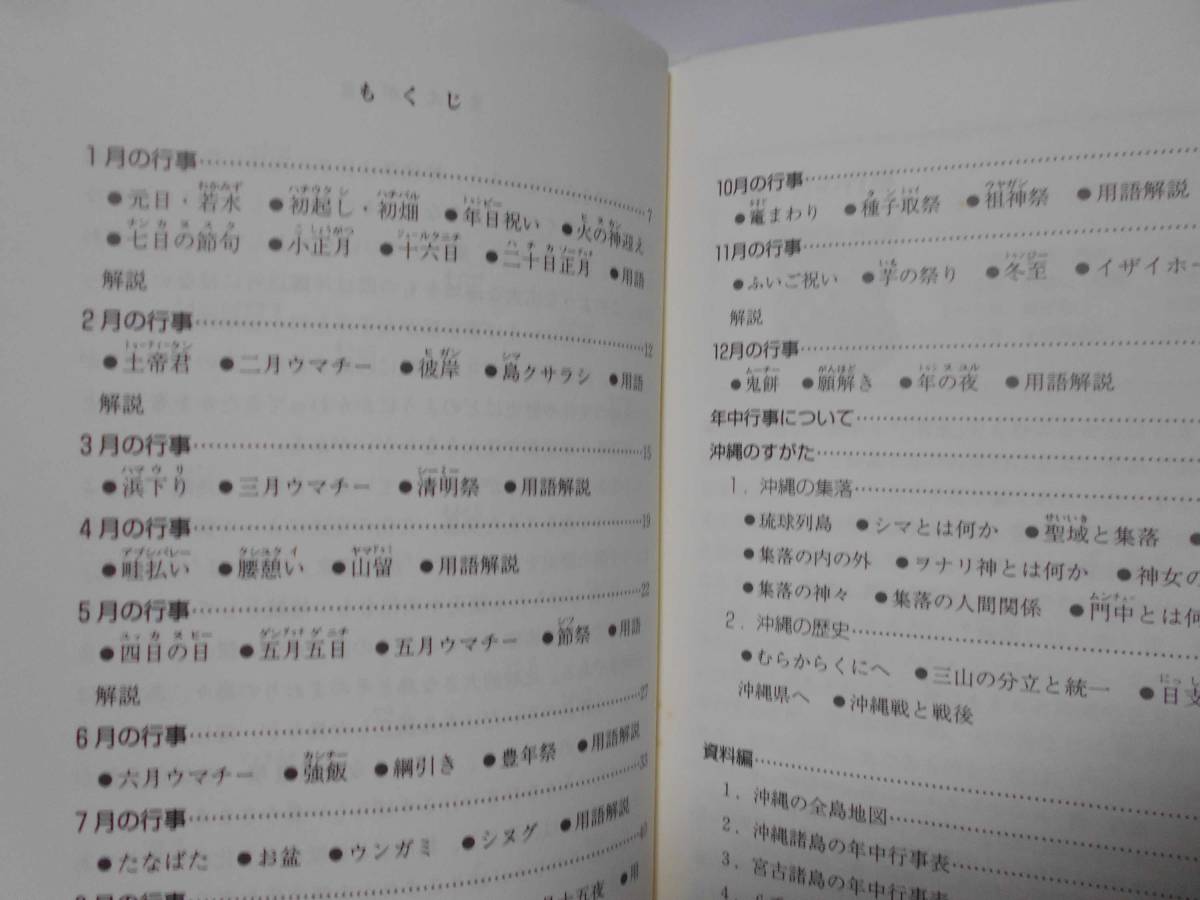 もくじ
1月の行事……………7
●元日・若水 ●初起し・初畑 ●年日祝い ●火の神迎え
●七日の節句 ●小正月 ●十六日 ●二十日正月 ●用語
解説
2月の行事……………12
●土帝君 ●二月ウマチー ●彼岸 ●島クサラシ ●用語
解説
3月の行事……………15
●浜下り ●三月ウマチー ●清明祭 ●用語解説
4月の行事……………19
●畦払い ●腰憩い ●山留 ●用語解説
5月の行事……………22
●四日の日 ●五月五日 ●五月ウマチー ●節祭 ●用語
解説
6月の行事……………27
●六月ウマチー ●強飯 ●綱引き ●豊年祭 ●用語解説
7月の行事……………33
●たなばた ●お盆 ●ウンガミ ●シヌグ ●用語解説
十五夜 ●用
10月の行事……………
●竃まわり ●種子取祭 ●祖神祭 ●用語解説
11月の行事……………
●ふいご祝い ●芋の祭り ●冬至 ●イザイホー
解説
12月の行事……………
●鬼餅 ●願解き ●年の夜 ●用語解説
年中行事について……………
沖縄のすがた……………
1.沖縄の集落……………
●琉球列島 ●シマとは何か ●聖域と集落 ●
●集落の内の外 ●ヲナリ神とは何か ●神女の
●集落の神々 ●集落の人間関係 ●門中とは何
2.沖縄の歴史……………
●むらからくにへ ●三山の分立と統一 ●日支
沖縄県へ ●沖縄戦と戦後
資料編……………
1.沖縄の全島地図……………
2.沖縄諸島の年中行事表……………
3.宮古諸島の年中行事表